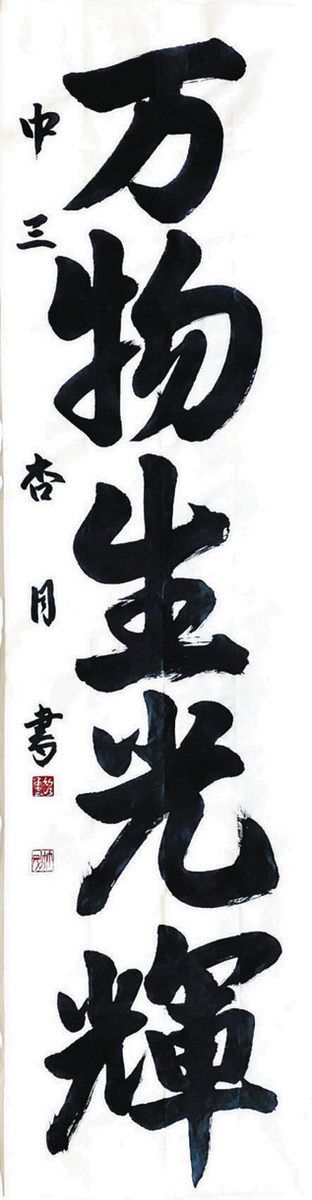 万物生光輝
中三 杏月書